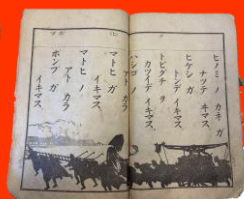 ヒノミ ノ カネ ガ
ナツテ キマス
ヒケシ ガ
トンデ イキマス
トビグチ ヲ
カツイデ イキマス
ハシゴ ノ
アト カラ
マトヒ ガ
イキマス
マトヒ ノ
アト カラ
ポンプ ガ
イキマス